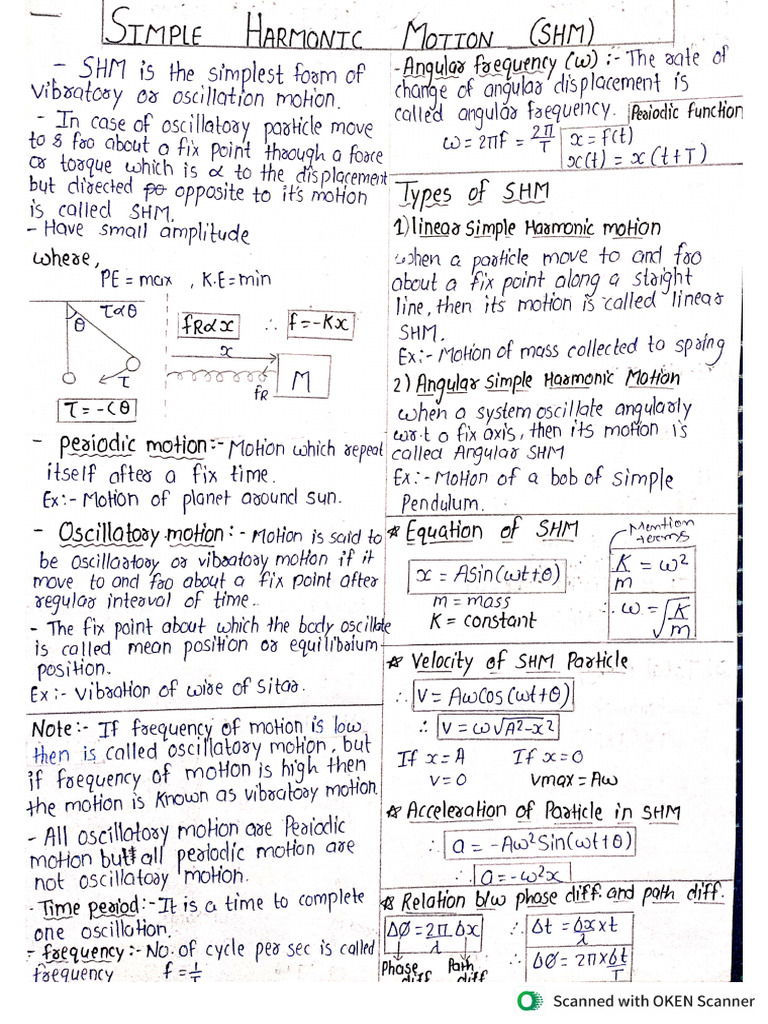 SIMPLE HARMONIC MOTION (SHM)
- SHM is the simplest form of
vibratory or oscillation motion.
- In case of oscillatory particle move
to & fro about a fix point through a force
or torque which is α to the displacement
but directed opposite to it's motion
is called SHM.
- Have small amplitude
where,
PE = max , K.E = min
τ α θ
θ
τ
τ = -Cθ
fR α x
∴ f = -Kx
x
fR
M
- Periodic motion:- Motion which repeat
itself after a fix time.
Ex:- Motion of planet around sun.
- Oscillatory motion:- Motion is said to
be oscillartory or vibratory motion if it
move to and fro about a fix point after
regular interval of time.
- The fix point about which the body oscillate
is called mean position or equilibrium
position.
Ex:- Vibration of wire of sitar.
Note:- If frequency of motion is low
then is called oscillatory motion, but
if frequency of motion is high then
the motion is known as vibratory motion
- All oscillatory motion are Periodic
motion but all periodic motion are
not oscillatory motion.
- Time period:- It is a time to complete
one oscillation.
- frequency:- No. of cycle per sec is called
frequency f = 1/T
- Angular frequency (ω) :- The rate of
change of angular displacement is
called angular frequency.
Periodic function
ω = 2πf = 2π/T
x = f(t)
x(t) = x (t+T)
Types of SHM
1) linear Simple Harmonic motion
when a particle move to and fro
about a fix point along a straight
line, then its motion is called linear
SHM.
Ex:- Motion of mass collected to spring
2) Angular Simple Harmonic Motion
when a system oscillate angularly
w.r.t o fix axis, then its motion is
called Angular SHM
Ex:- Motion of a bob of simple
Pendulum.
* Equation of SHM
Mention
terms
x = ASin(ωt+θ)
m = mass
K = constant
K/m = ω²
∴ ω = √K/m
* Velocity of SHM Particle
∴ V = AωCos(ωt+θ)
∴ V = ω√A²-x²
If x = A If x = 0
v = 0 Vmax = Aω
* Acceleration of Particle in SHM
∴ a = -Aω²Sin(ωt+θ)
∴ a = -ω²x
* Relation b/w phase diff. and path diff.
ΔØ = 2π Δx/λ
Phase diff
Path diff
∴ Δt = Δx/λ × t
∴ ΔØ = 2π × Δt/T
Scanned with OKEN Scanner